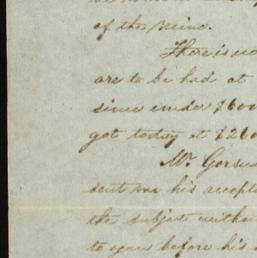 of the mine.
There is no
are to be had at
since under $600
got today at $260
Mr. Gorsu
sent me his accept
the subject witho
to you before his